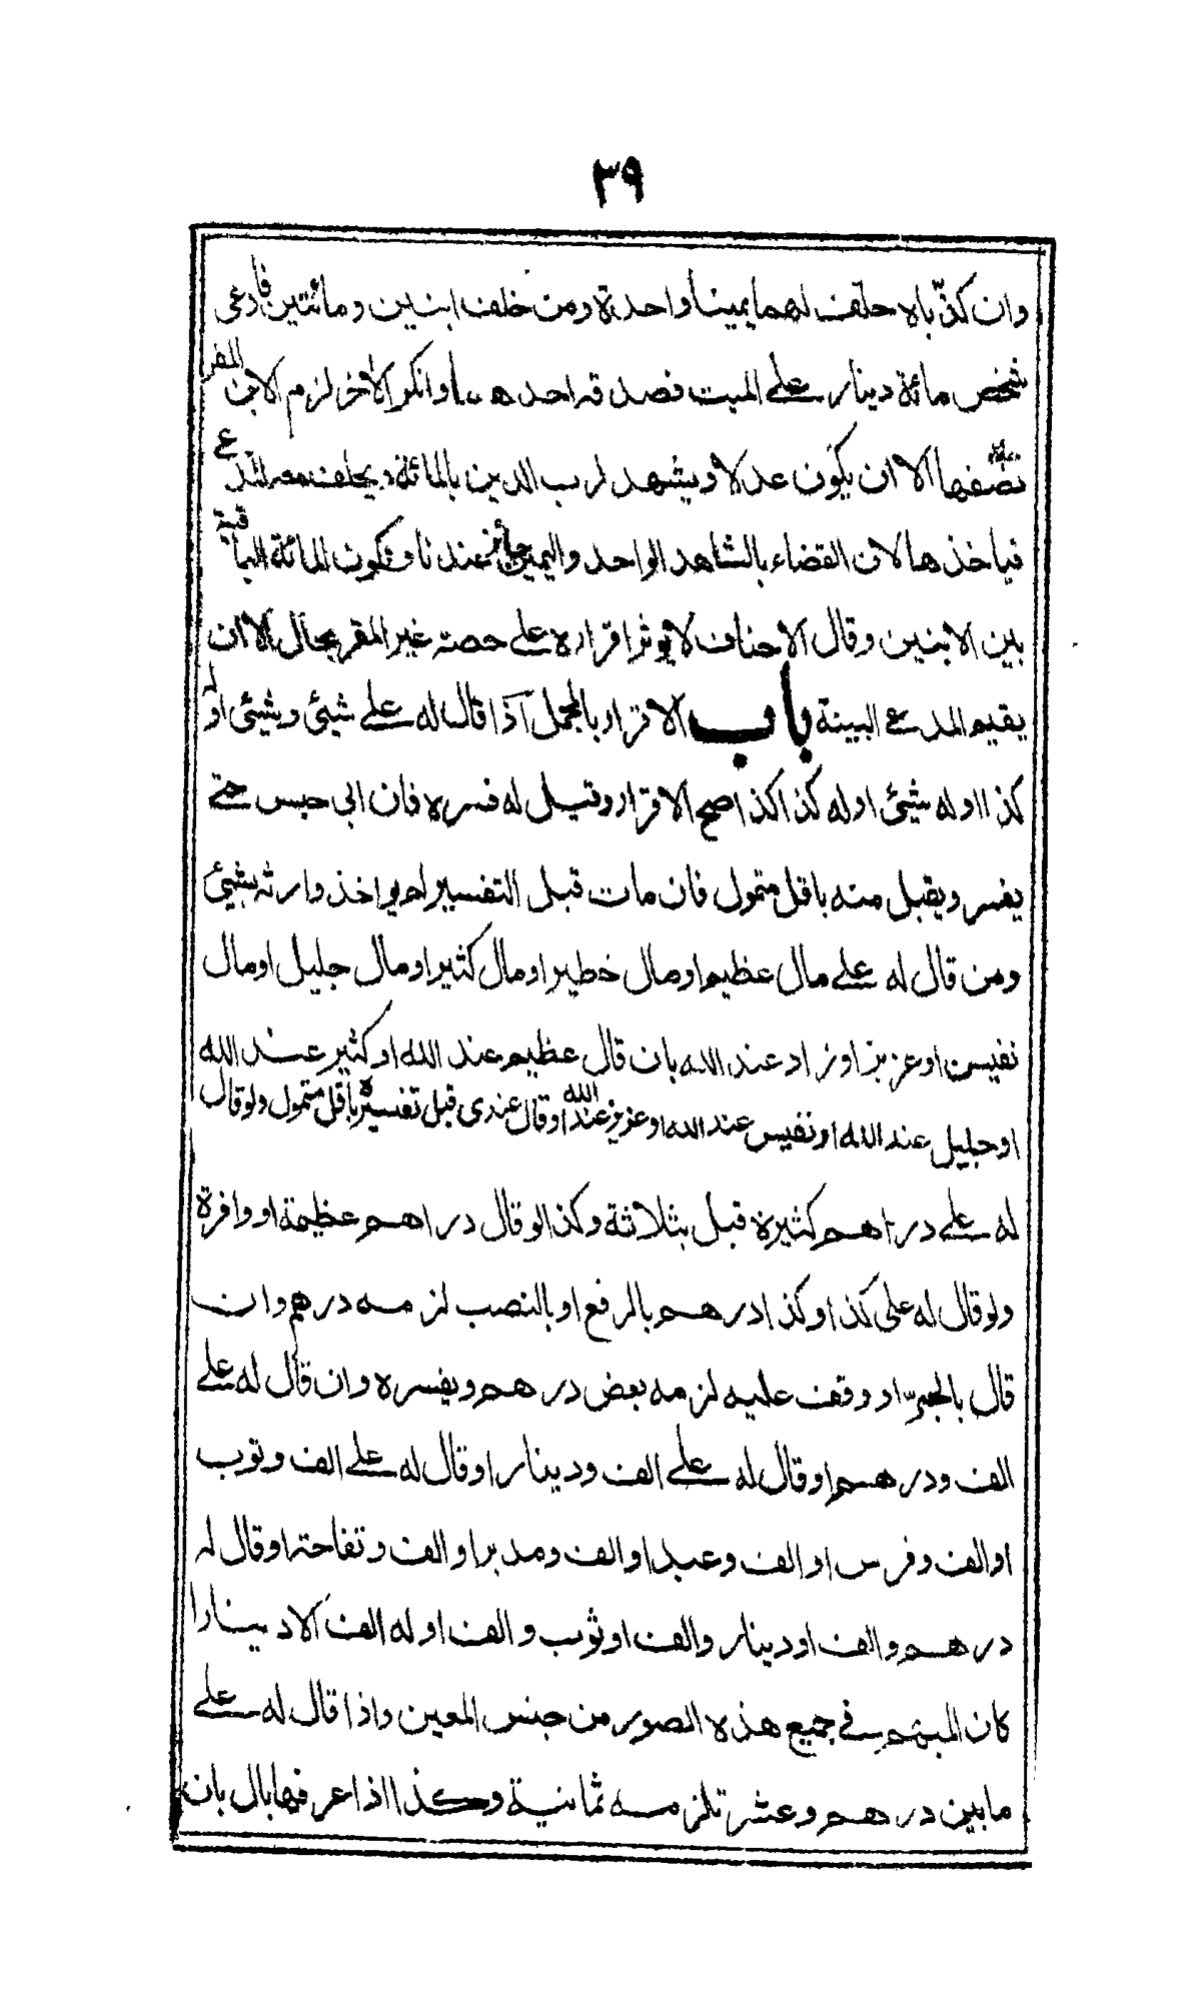 ٣٩
وان كذّباه حلف لهما يمينا واحدة ومن خلف ابنين ومائتين فادعى
شخص مائة دينار على الميت فصدقه احدهما وانكر الآخر لزم الابن المقر
نصفها الا ان يكون عدلا ويشهد لرب الدين بالمائة ويحلف معه المدعى
فياخذها لان القضاء بالشاهد الواحد واليمين جائز عندنا وتكون المائة الباقية
بين الابنين وقال الاحناف لا يوثر اقراره على حصته غير المقر بحال الا ان
يقيم المدعى البينة باب الاقرار بالمجمل اذا قال له على شيئ وشيئ او له
كذا او له شيئ اوله كذا كذا صح الاقرار وقيل له فسره فان ابى حبس حتى
يفسر ويقبل منه باقل متمول فان مات قبل التفسير لم يواخذ وارثه بشيئ
ومن قال له على مال عظيم او مال خطير او مال كثير او مال جليل او مال
نفيس او عزيز او زاد عند الله بان قال عظيم عند الله او كثير عند الله
او جليل عند الله او نفيس عند الله او عزيز عند الله او قال عندى قبل تفسيره باقل متمول ولو قال
له على دراهم كثيرة قبل بثلاثة وكذا لو قال دراهم عظيمة او وافرة
ولو قال له على كذا وكذا درهم بالرفع او بالنصب لزمه درهم وان
قال بالجر او وقف عليه لزمه بعض درهم ويفسره وان قال له على
الف ودرهم او قال له على الف ودينار او قال له على الف وثوب
او الف وفرس او الف وعبد او الف ومدبر او الف وتفاحة او قال له
درهم والف او دينار والف او ثوب والف او له الف الا دينارا
كان المبهم فى جميع هذه الصور من جنس المعين واذا قال له على
ما بين درهم وعشرة لزمه ثمانية وكذا اذا عرفها بال بان